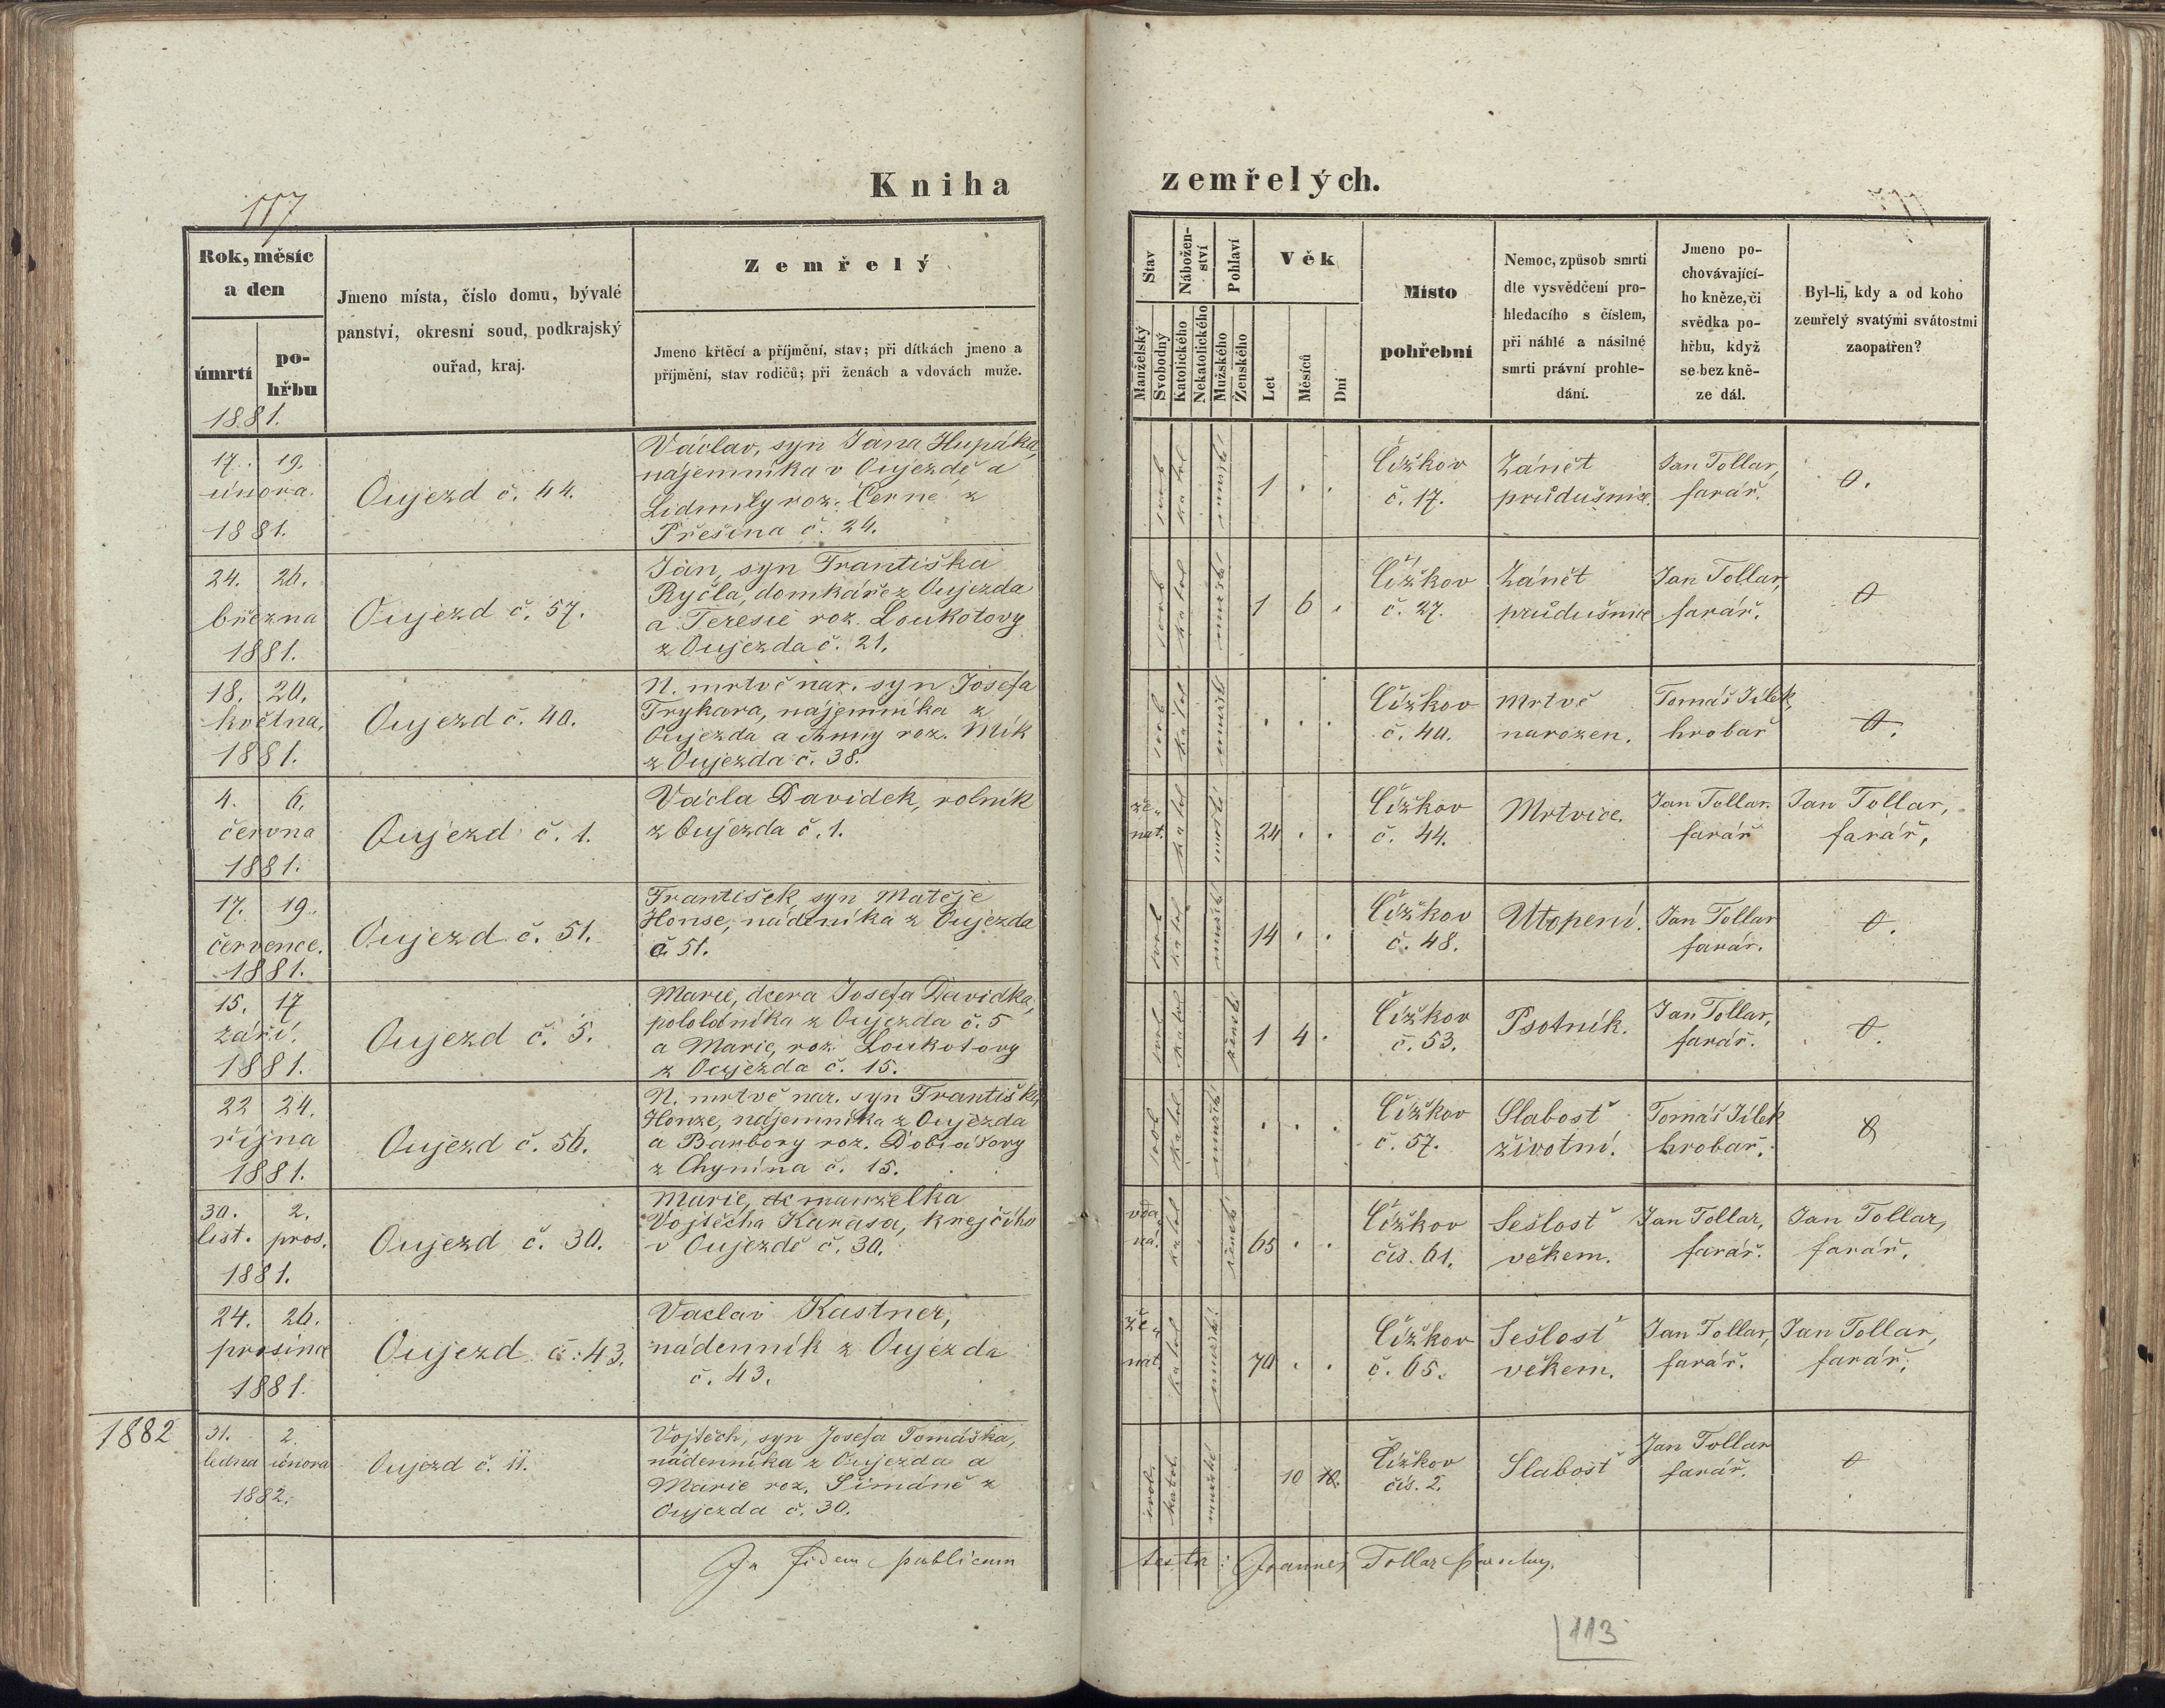 Kniha zemřelých.
117
Rok, měsíc
a den
úmrtí
po-
hřbu
1881.
Jmeno místa, číslo domu, bývalé
panství, okresní soud, podkrajský
ouřad, kraj.
Zemřelý
Jmeno křtěcí a příjmění, stav; při dítkách jmeno a
příjmění, stav rodičů; při ženách a vdovách muže.
Stav
Manželský
Svobodný
Nábožen-
ství
Katolického
Nekatolického
Pohlaví
Mužského
Ženského
Věk
Let
Měsíců
Dní
Místo
pohřební
Nemoc, způsob smrti
dle vysvědčení pro-
hledacího s číslem,
při náhlé a násilné
smrti právní prohle-
dání.
Jmeno po-
chovávající-
ho kněze, či
svědka po-
hřbu, když
se bez kně-
ze dál.
Byl-li, kdy a od koho
zemřelý svatými svátostmi
zaopatřen?
17. 19.
února.
1881.
Oujezd č. 44.
Václav, syn Jana Hupáka,
nájemníka v Oujezdě a
Lidmily roz. Černé z
Přešina č. 24.
svob katol mužsk.
1 . .
Čížkov
č. 17.
Zánět
průdušnice.
Jan Tollar,
farář.
0.
24. 26.
března
1881.
Oujezd č. 57.
Ján, syn Františka
Ryčla, domkáře z Oujezda
a Teresie roz. Loukotovy
z Oujezda č. 21.
svob katol mužsk
1 6 .
Čížkov
č. 27.
Zánět
průdušnice
Jan Tollar,
farář.
0
18. 20.
května,
1881.
Oujezd č. 40.
N. mrtvě nar. syn Josefa
Trykara, najemníka z
Oujezda a Anny roz. Mík
z Oujezda č. 38.
svob katol mužsk
. . .
Čížkov
č. 40.
Mrtvě
narozen.
Tomáš Jílek,
hrobař
0.
4. 6.
června
1881.
Oujezd č. 1.
Václa Davidek, rolník
z Oujezda č. 1.
že-
nat. katol mužsk
24 . .
Čížkov
č. 44.
Mrtvice.
Jan Tollar.
farář
Jan Tollar,
farář.
17. 19.
července.
1881.
Oujezd č. 51.
František, syn Matěje
Honse, nádeníka z Oujezda
č. 51.
svob katol mužsk
14 . .
Čížkov
č. 48.
Utopení.
Jan Tollar
farář.
0.
15. 17
září.
1881.
Oujezd č. 5.
Marie, dcera Josefa Davidka,
pololáníka z Oujezda č. 5
a Marie, roz. Loukotovy
z Oujezda č. 15.
svob katol žensk
1 4 .
Čížkov
č. 53.
Psotník.
Jan Tollar,
farář.
0.
22 24.
října
1881.
Oujezd č. 56.
N. mrtvě nar. syn Františka
Honze, nájemníka z Oujezda
a Barbory roz. Dobiášovy
z Chynína č. 15.
svob katol mužsk
. . .
Čížkov
č. 57.
Slabosť
životní.
Tomáš Jílek
hrobař.
0
30. 2.
list. pros.
1881.
Oujezd č. 30.
Marie, manželka
Vojtěcha Karasa, krejčího
v Oujezdě č. 30.
vda-
ná. katol žensk
65 . .
Čížkov
čís. 61.
Sešlosť
věkem.
Jan Tollar,
farář.
Jan Tollar,
farář.
24. 26.
prosince
1881.
Oujezd č. 43.
Vaclav Kastner,
nádenník z Oujezda
č. 43.
že-
nat. katol mužsk.
70 . .
Čížkov
č. 65.
Sešlosť
věkem.
Jan Tollar,
farář.
Jan Tollar,
farář.
1882
31. 2.
ledna února
1882.
Oujezd č. 11.
Vojtěch, syn Josefa Tomáška,
nádenníka z Oujezda a
Marie roz. Šimáně z
Oujezda č. 30.
svob. katol. mužské
10
Čížkov
čís. 2.
Slabosť
Jan Tollar
farář.
0
In fidem publicum
testor: Joannes Tollar parochus.
113